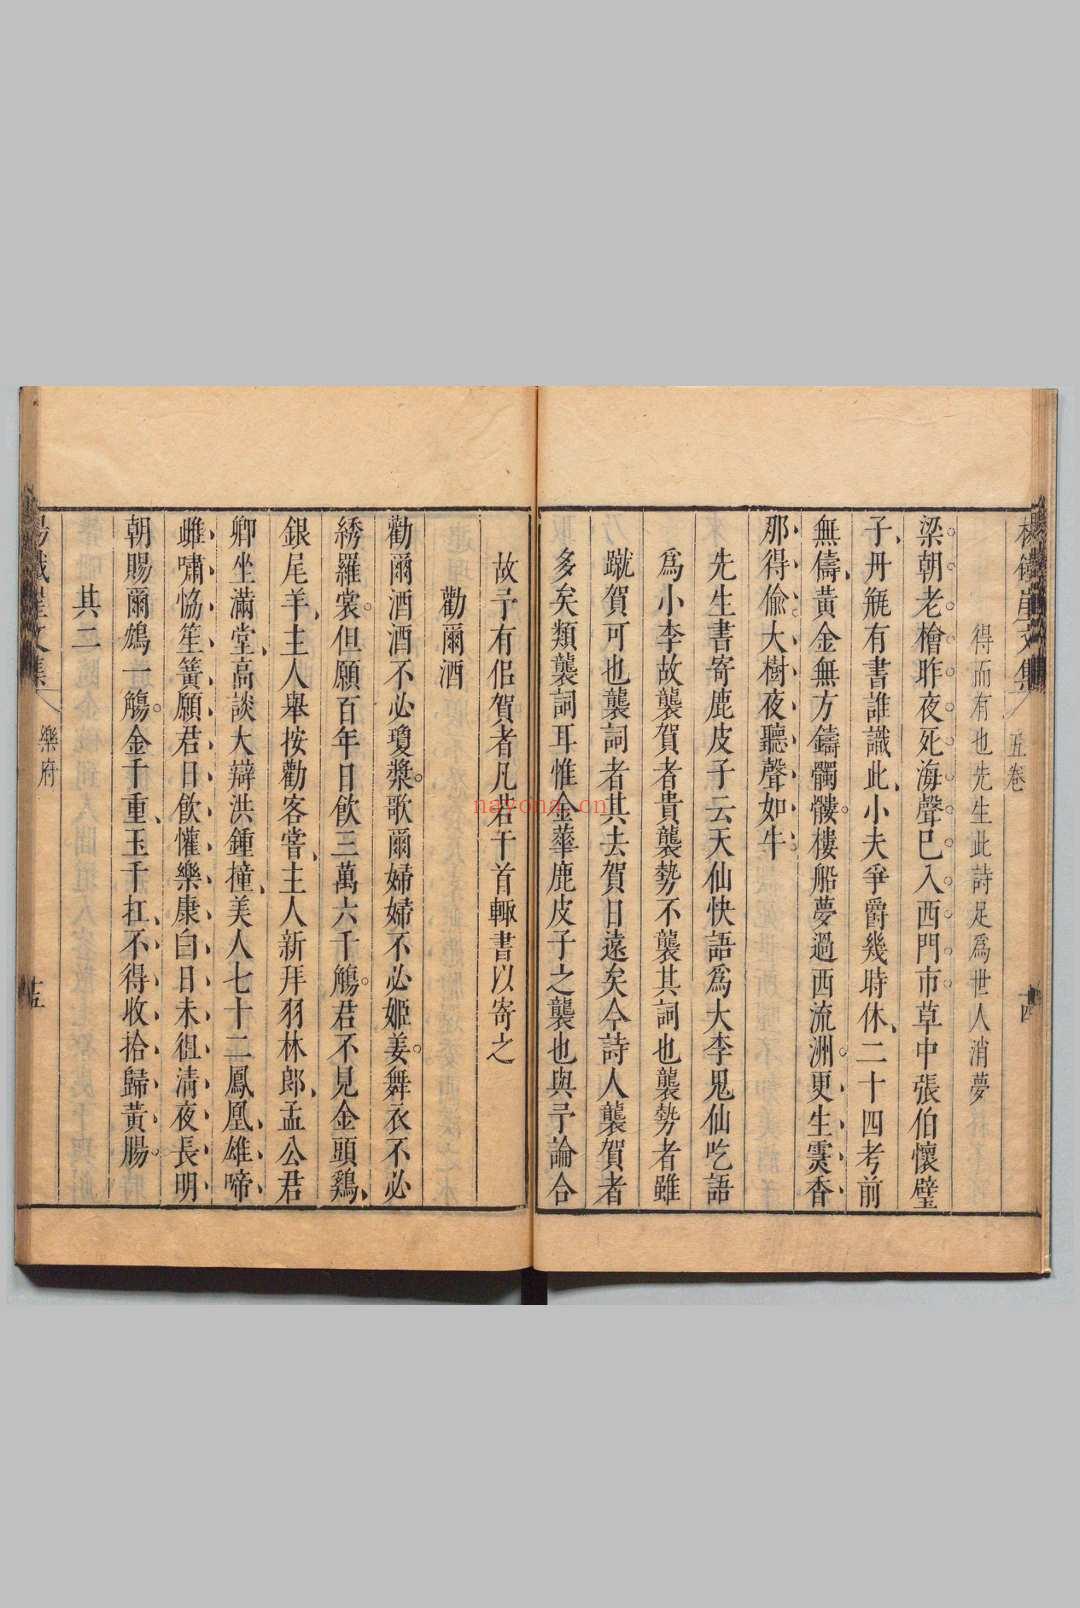 楊鐵崖文集 五卷 十四
得而有也先生此詩足爲世人消夢
梁朝老檜昨夜死海聲已入西門市草中張伯懷璧
子丹甀有書誰識此小夫爭爵幾時休二十四考前
無儔黃金無方鑄髑髏樓船夢過西流洲更生霙香
那得偸大樹夜聽聲如牛
先生書寄鹿皮子云天仙快語爲大李鬼仙吃語
爲小李故襲賀者貴襲勢不襲其詞也襲勢者雖
蹴賀可也襲詞者其去賀日遠矣今詩人襲賀者
多矣類襲詞耳惟金華鹿皮子之襲也與予論合
故予有侶賀者凡若干首輙書以寄之
勸爾酒
勸爾酒酒不必瓊漿歌爾婦婦不必姬姜舞衣不必
綉羅裳但願百年日飮三萬六千觴君不見金頭鷄
銀尾羊主人舉按勸客甞主人新拜羽林郎孟公君
卿坐滿堂高談大辯洪鍾撞美人七十二鳳凰雄啼
雌嘯恊笙簧願君日飮懽樂康白日未徂淸夜長明
朝賜爾鴆一觴金千重玉千扛不得收拾歸黃腸
其二
楊鐵崖文集 樂府 十五
nayona.cn